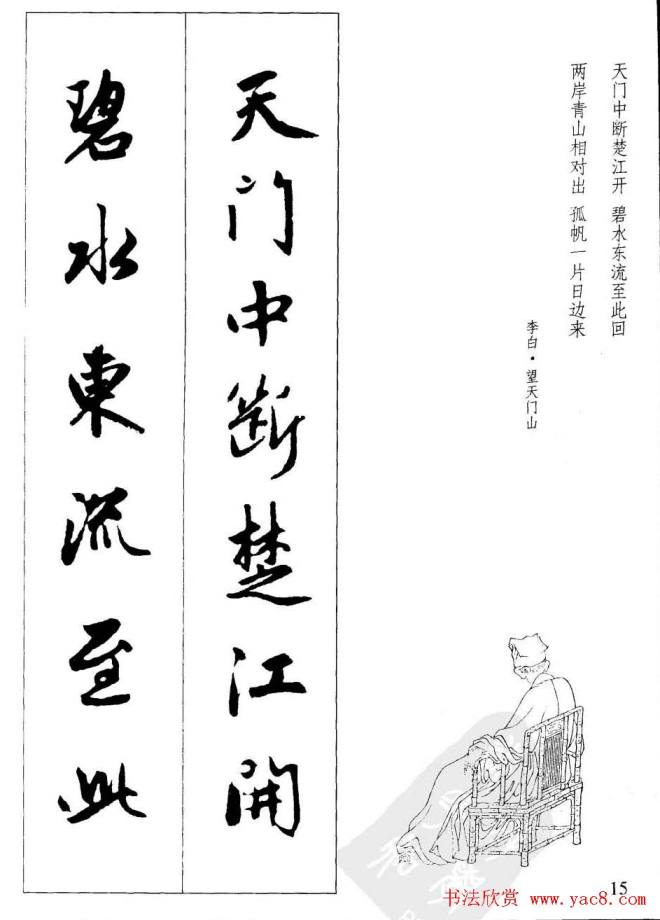 天门中断楚江开 碧水东流至此回
两岸青山相对出 孤帆一片日边来
李白·望天门山
天门中斷楚江開
碧水東流至此
15
书法欣赏 www.yac8.com